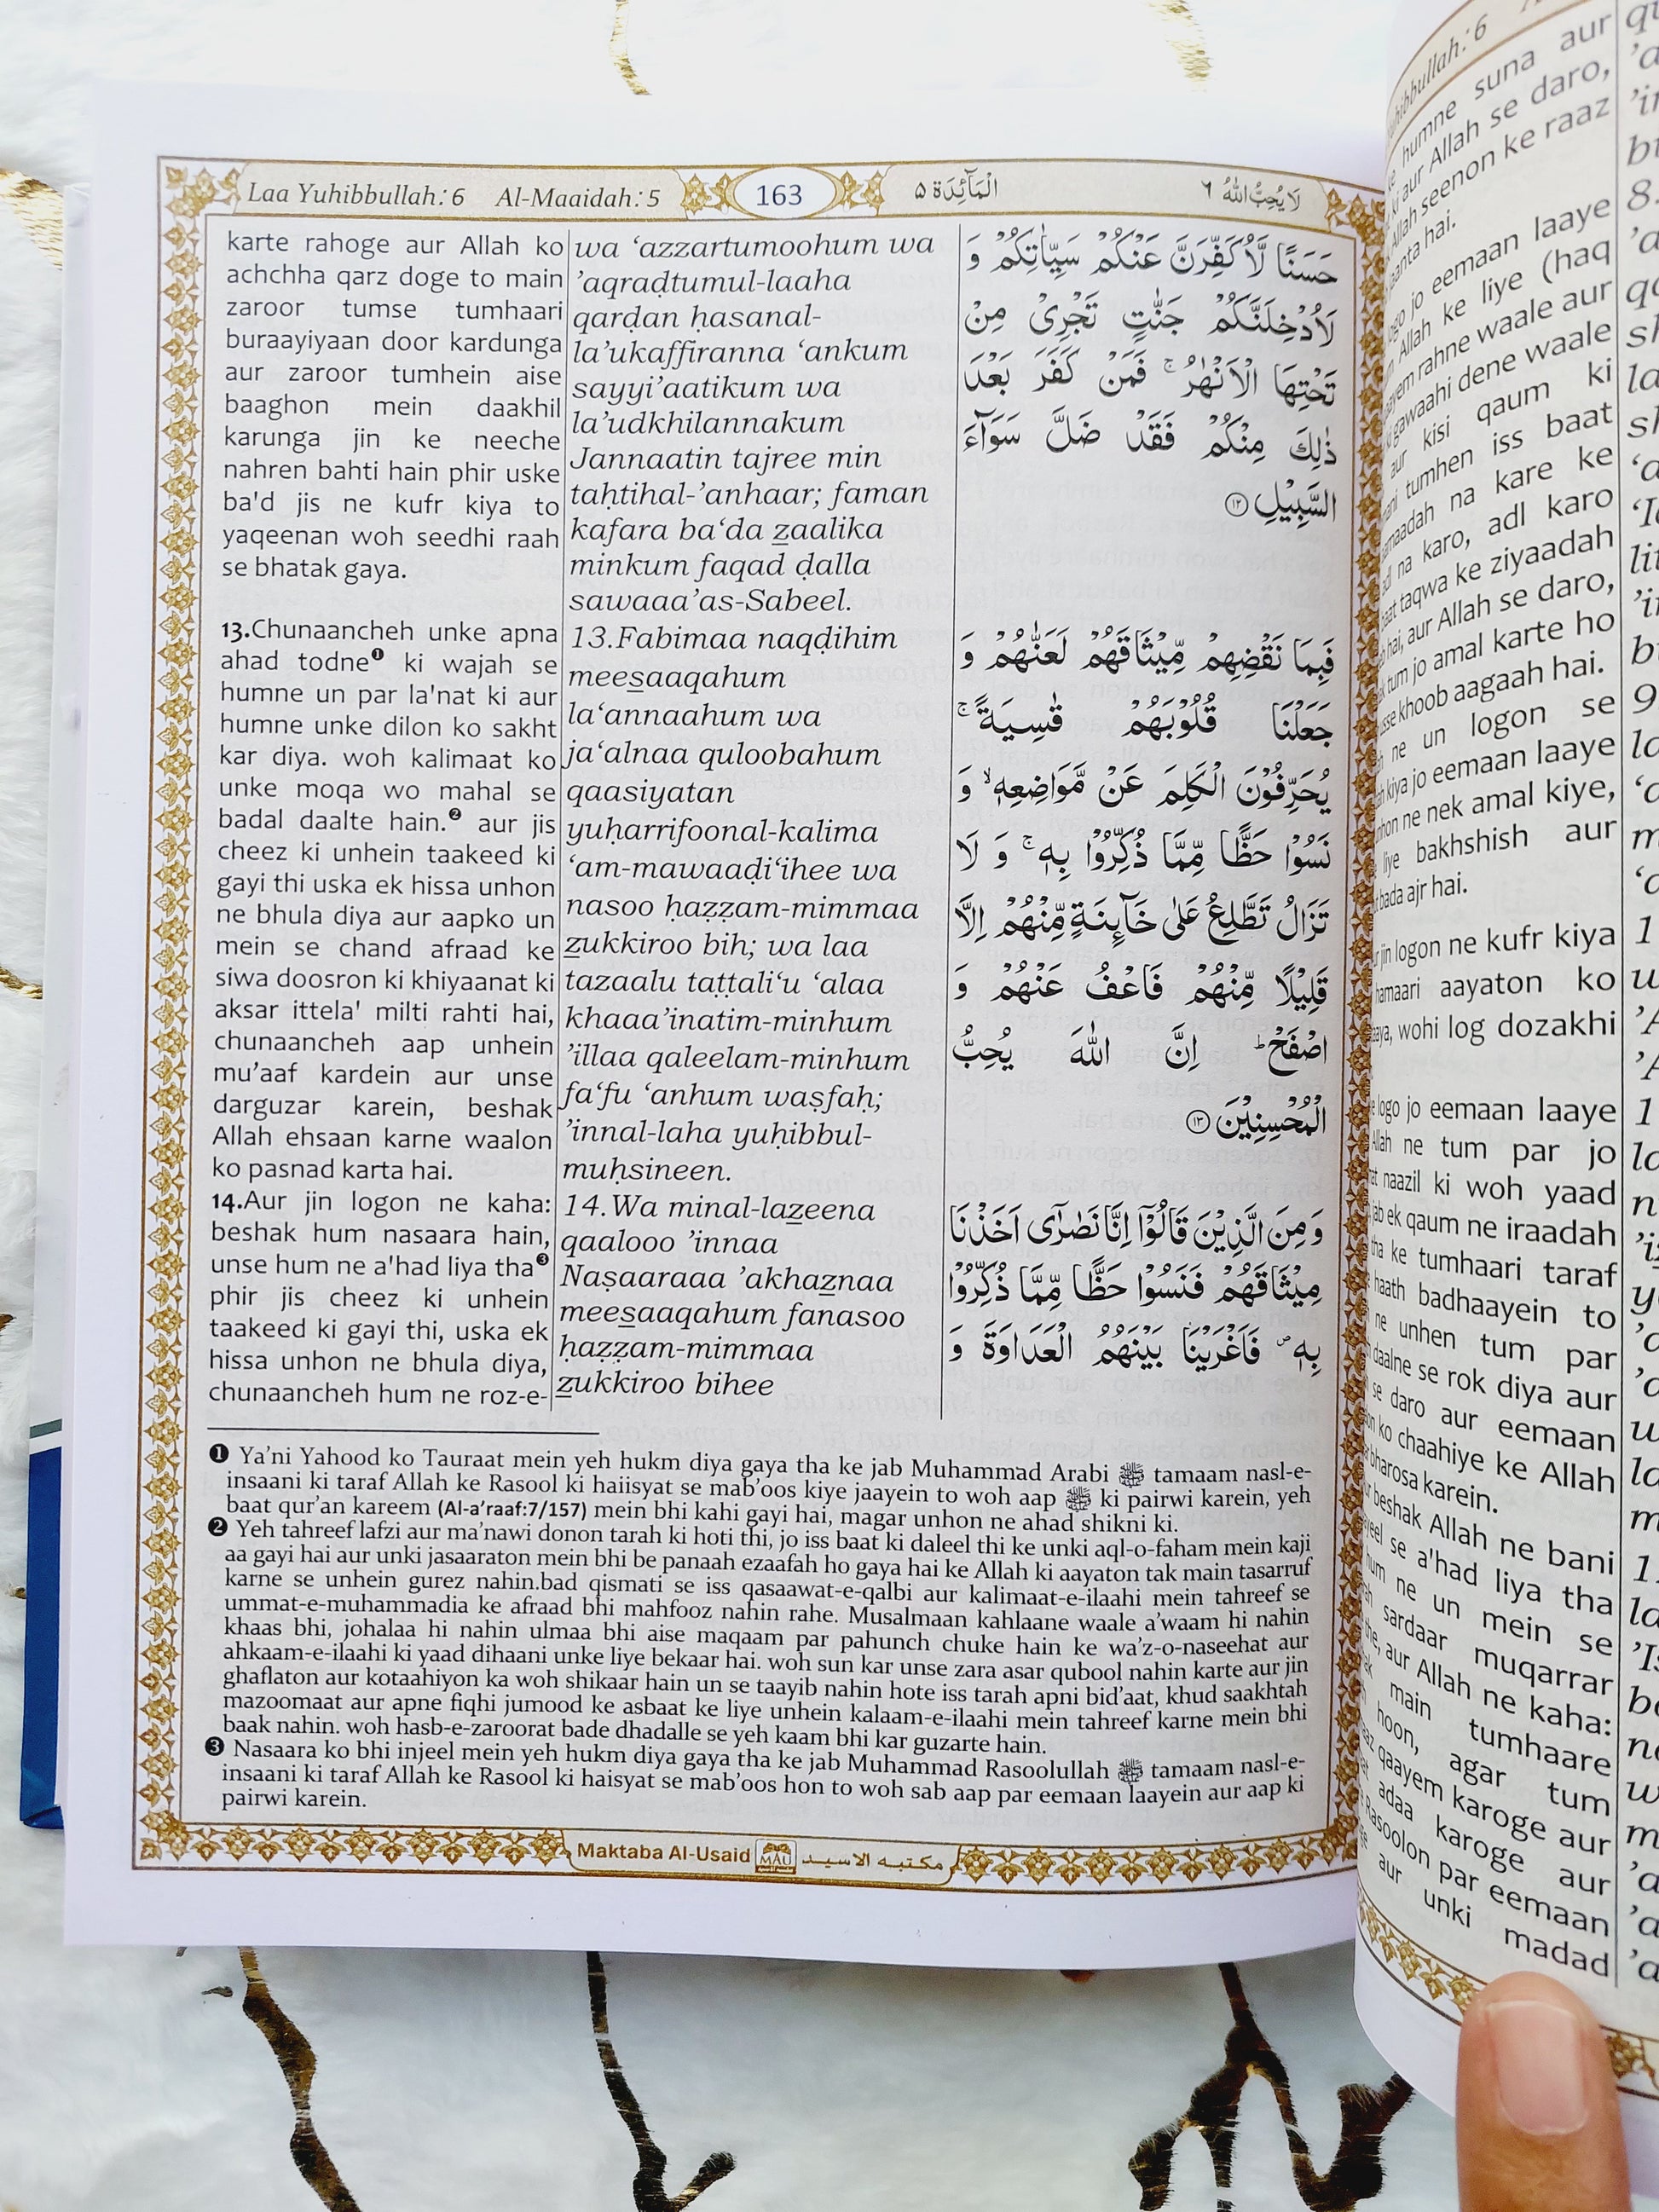 Laa Yuhibbullah: 6 Al-Maaidah: 5 163 الْمَآئِدَة ۵ لَا يُحِبُّ اللهُ ٦
karte rahoge aur Allah ko
achchha qarz doge to main
zaroor tumse tumhaari
buraayiyaan door kardunga
aur zaroor tumhein aise
baaghon mein daakhil
karunga jin ke neeche
nahren bahti hain phir uske
ba'd jis ne kufr kiya to
yaqeenan woh seedhi raah
se bhatak gaya.
13.Chunaancheh unke apna
ahad todne❶ ki wajah se
humne un par la'nat ki aur
humne unke dilon ko sakht
kar diya. woh kalimaat ko
unke moqa wo mahal se
badal daalte hain.❷ aur jis
cheez ki unhein taakeed ki
gayi thi uska ek hissa unhon
ne bhula diya aur aapko un
mein se chand afraad ke
siwa doosron ki khiyaanat ki
aksar ittela' milti rahti hai,
chunaancheh aap unhein
mu’aaf kardein aur unse
darguzar karein, beshak
Allah ehsaan karne waalon
ko pasnad karta hai.
14.Aur jin logon ne kaha:
beshak hum nasaara hain,
unse hum ne a'had liya tha❸
phir jis cheez ki unhein
taakeed ki gayi thi, uska ek
hissa unhon ne bhula diya,
chunaancheh hum ne roz-e-
wa ‘azzartumoohum wa
’aqraḍtumul-laaha
qarḍan ḥasanal-
la’ukaffiranna ‘ankum
sayyi’aatikum wa
la’udkhilannakum
Jannaatin tajree min
taḥtihal-’anhaar; faman
kafara ba‘da z̲aalika
minkum faqad ḍalla
sawaaa’as-Sabeel.
13.Fabimaa naqḍihim
mees̲aaqahum
la‘annaahum wa
ja‘alnaa quloobahum
qaasiyatan
yuḥarrifoonal-kalima
‘am-mawaaḍi‘ihee wa
nasoo ḥaẓẓam-mimmaa
z̲ukkiroo bih; wa laa
tazaalu taṭṭali‘u ‘alaa
khaaa’inatim-minhum
’illaa qaleelam-minhum
fa‘fu ‘anhum waṣfaḥ;
’innal-laha yuḥibbul-
muḥsineen.
14.Wa minal-laz̲eena
qaalooo ’innaa
Naṣaaraaa ’akhaz̲naa
mees̲aaqahum fanasoo
ḥaẓẓam-mimmaa
z̲ukkiroo bihee
حَسَنًا لَّاُكَفِّرَنَّ عَنْكُمْ سَيِّاٰتِكُمْ وَ
لَاُدْخِلَنَّكُمْ جَنّٰتٍ تَجْرِيْ مِنْ
تَحْتِهَا الْاَنْهٰرُ ۚ فَمَنْ كَفَرَ بَعْدَ
ذٰلِكَ مِنْكُمْ فَقَدْ ضَلَّ سَوَآءَ
السَّبِيْلِ ۝۱۲
فَبِمَا نَقْضِهِمْ مِّيْثَاقَهُمْ لَعَنّٰهُمْ وَ
جَعَلْنَا قُلُوْبَهُمْ قٰسِيَةً ۚ
يُحَرِّفُوْنَ الْكَلِمَ عَنْ مَّوَاضِعِهٖ ۙ وَ
نَسُوْا حَظًّا مِّمَّا ذُكِّرُوْا بِهٖ ۚ وَ لَا
تَزَالُ تَطَّلِعُ عَلٰى خَآىِٕنَةٍ مِّنْهُمْ اِلَّا
قَلِيْلًا مِّنْهُمْ فَاعْفُ عَنْهُمْ وَ
اصْفَحْ ؕ اِنَّ اللّٰهَ يُحِبُّ
الْمُحْسِنِيْنَ ۝۱۳
وَ مِنَ الَّذِيْنَ قَالُوْٓا اِنَّا نَصٰرٰٓى اَخَذْنَا
مِيْثَاقَهُمْ فَنَسُوْا حَظًّا مِّمَّا ذُكِّرُوْا
بِهٖ ۪ فَاَغْرَيْنَا بَيْنَهُمُ الْعَدَاوَةَ وَ
❶ Ya’ni Yahood ko Tauraat mein yeh hukm diya gaya tha ke jab Muhammad Arabi ﷺ tamaam nasl-e-
insaani ki taraf Allah ke Rasool ki haiisyat se mab’oos kiye jaayein to woh aap ﷺ ki pairwi karein, yeh
baat qur’an kareem (Al-a’raaf:7/157) mein bhi kahi gayi hai, magar unhon ne ahad shikni ki.
❷ Yeh tahreef lafzi aur ma’nawi donon tarah ki hoti thi, jo iss baat ki daleel thi ke unki aql-o-faham mein kaji
aa gayi hai aur unki jasaaraton mein bhi be panaah ezaafah ho gaya hai ke Allah ki aayaton tak main tasarruf
karne se unhein gurez nahin.bad qismati se iss qasaawat-e-qalbi aur kalimaat-e-ilaahi mein tahreef se
ummat-e-muhammadia ke afraad bhi mahfooz nahin rahe. Musalmaan kahlaane waale a’waam hi nahin
khaas bhi, johalaa hi nahin ulmaa bhi aise maqaam par pahunch chuke hain ke wa’z-o-naseehat aur
ahkaam-e-ilaahi ki yaad dihaani unke liye bekaar hai. woh sun kar unse zara asar qubool nahin karte aur jin
ghaflaton aur kotaahiyon ka woh shikaar hain un se taayib nahin hote iss tarah apni bid’aat, khud saakhtah
mazoomaat aur apne fiqhi jumood ke asbaat ke liye unhein kalaam-e-ilaahi mein tahreef karne mein bhi
baak nahin. woh hasb-e-zaroorat bade dhadalle se yeh kaam bhi kar guzarte hain.
❸ Nasaara ko bhi injeel mein yeh hukm diya gaya tha ke jab Muhammad Rasoolullah ﷺ tamaam nasl-e-
insaani ki taraf Allah ke Rasool ki haisyat se mab’oos hon to woh sab aap par eemaan laayein aur aap ki
pairwi karein.
Maktaba Al-Usaid MAU مكتبه الاسيد
humne suna aur
aur Allah se daro,
Allah seenon ke raaz
jaanta hai.
jo eemaan laaye
Allah ke liye (haq
rahne waale aur
gawaahi dene waale
aur kisi qaum ki
tumhen iss baat
na kare ke
na karo, adl karo
taqwa ke ziyaadah
hai, aur Allah se daro,
tum jo amal karte ho
khoob aagaah hai.
ne un logon se
kiya jo eemaan laaye
ne nek amal kiye,
liye bakhshish aur
bada ajr hai.
jin logon ne kufr kiya
hamaari aayaton ko
wohi log dozakhi
logo jo eemaan laaye
Allah ne tum par jo
naazil ki woh yaad
jab ek qaum ne iraadah
tha ke tumhaari taraf
haath badhaayein to
ne unhen tum par
daalne se rok diya aur
se daro aur eemaan
ko chaahiye ke Allah
bharosa karein.
beshak Allah ne bani
se a'had liya tha
hum ne un mein se
sardaar muqarrar
the, aur Allah ne kaha:
main tumhaare
hoon, agar tum
qaayem karoge aur
adaa karoge aur
Rasoolon par eemaan
aur unki madad